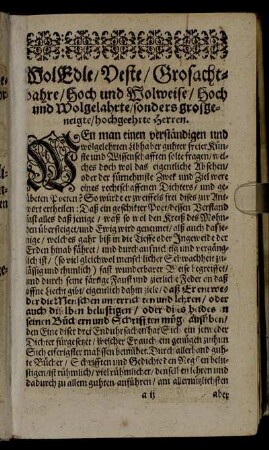 WolEdle / Veste / Grosacht-
bahre / Hoch und Wolweise / Hoch
und Wolgelahrte / sonders großge-
neigte / hochgeehrte Herren.
WEn man einen verständigen und
wolgelehrten libhaber guhter freier Kün-
ste und Wissenschafften solte fragen / wel-
ches doch wol das eigentliche Absehen /
oder der fürnehmste Zwek und Ziel were
eines rechtschaffenen Dichters / und ge-
übeten Poeten? So würde er zweifels frei dises zur An-
wort ertheilen: Daß ein geschikter Poet / dessen Verstand
sust alles das jenige / waß so wol den Kreiß des Mohn-
den übersteiget / und Ewig wird genennet / als auch das je-
nige / welches gahr biß in die Tieffe oder Ingeweide der
Erden hinab fähret / und durchauß nichtig und vergäng-
lich ist / (so viel gleichwol menschlicher Schwachheit zu-
lässig und rühmlich) fast wunderbahre Weise begreiffet /
und durch seine färtige Faust und zierliche Feder an daß
offene Liecht gibt / eigentlich dahin ziele / daß Er entwe-
der die Menschen unterrichten und lehren / oder
auch dieselben belustigen / oder dises beides in
seinen Büchern und Schrifften müge außüben /
den Eine diser drei Endursachen hat Sich ein jeder
Dichter fürgesetzet / welcher Er auch ein genügen zuthun
Sich eiferigster mahssen bemühet. Durch allerhand guh-
te Bücher / Schrifften und Gedichte den Menschen belu-
stigen / ist rühmlich / viel rühmlicher / denselben lehren und
dadurch zu allem guhten anführen / am allernützlichsten
a ij aber